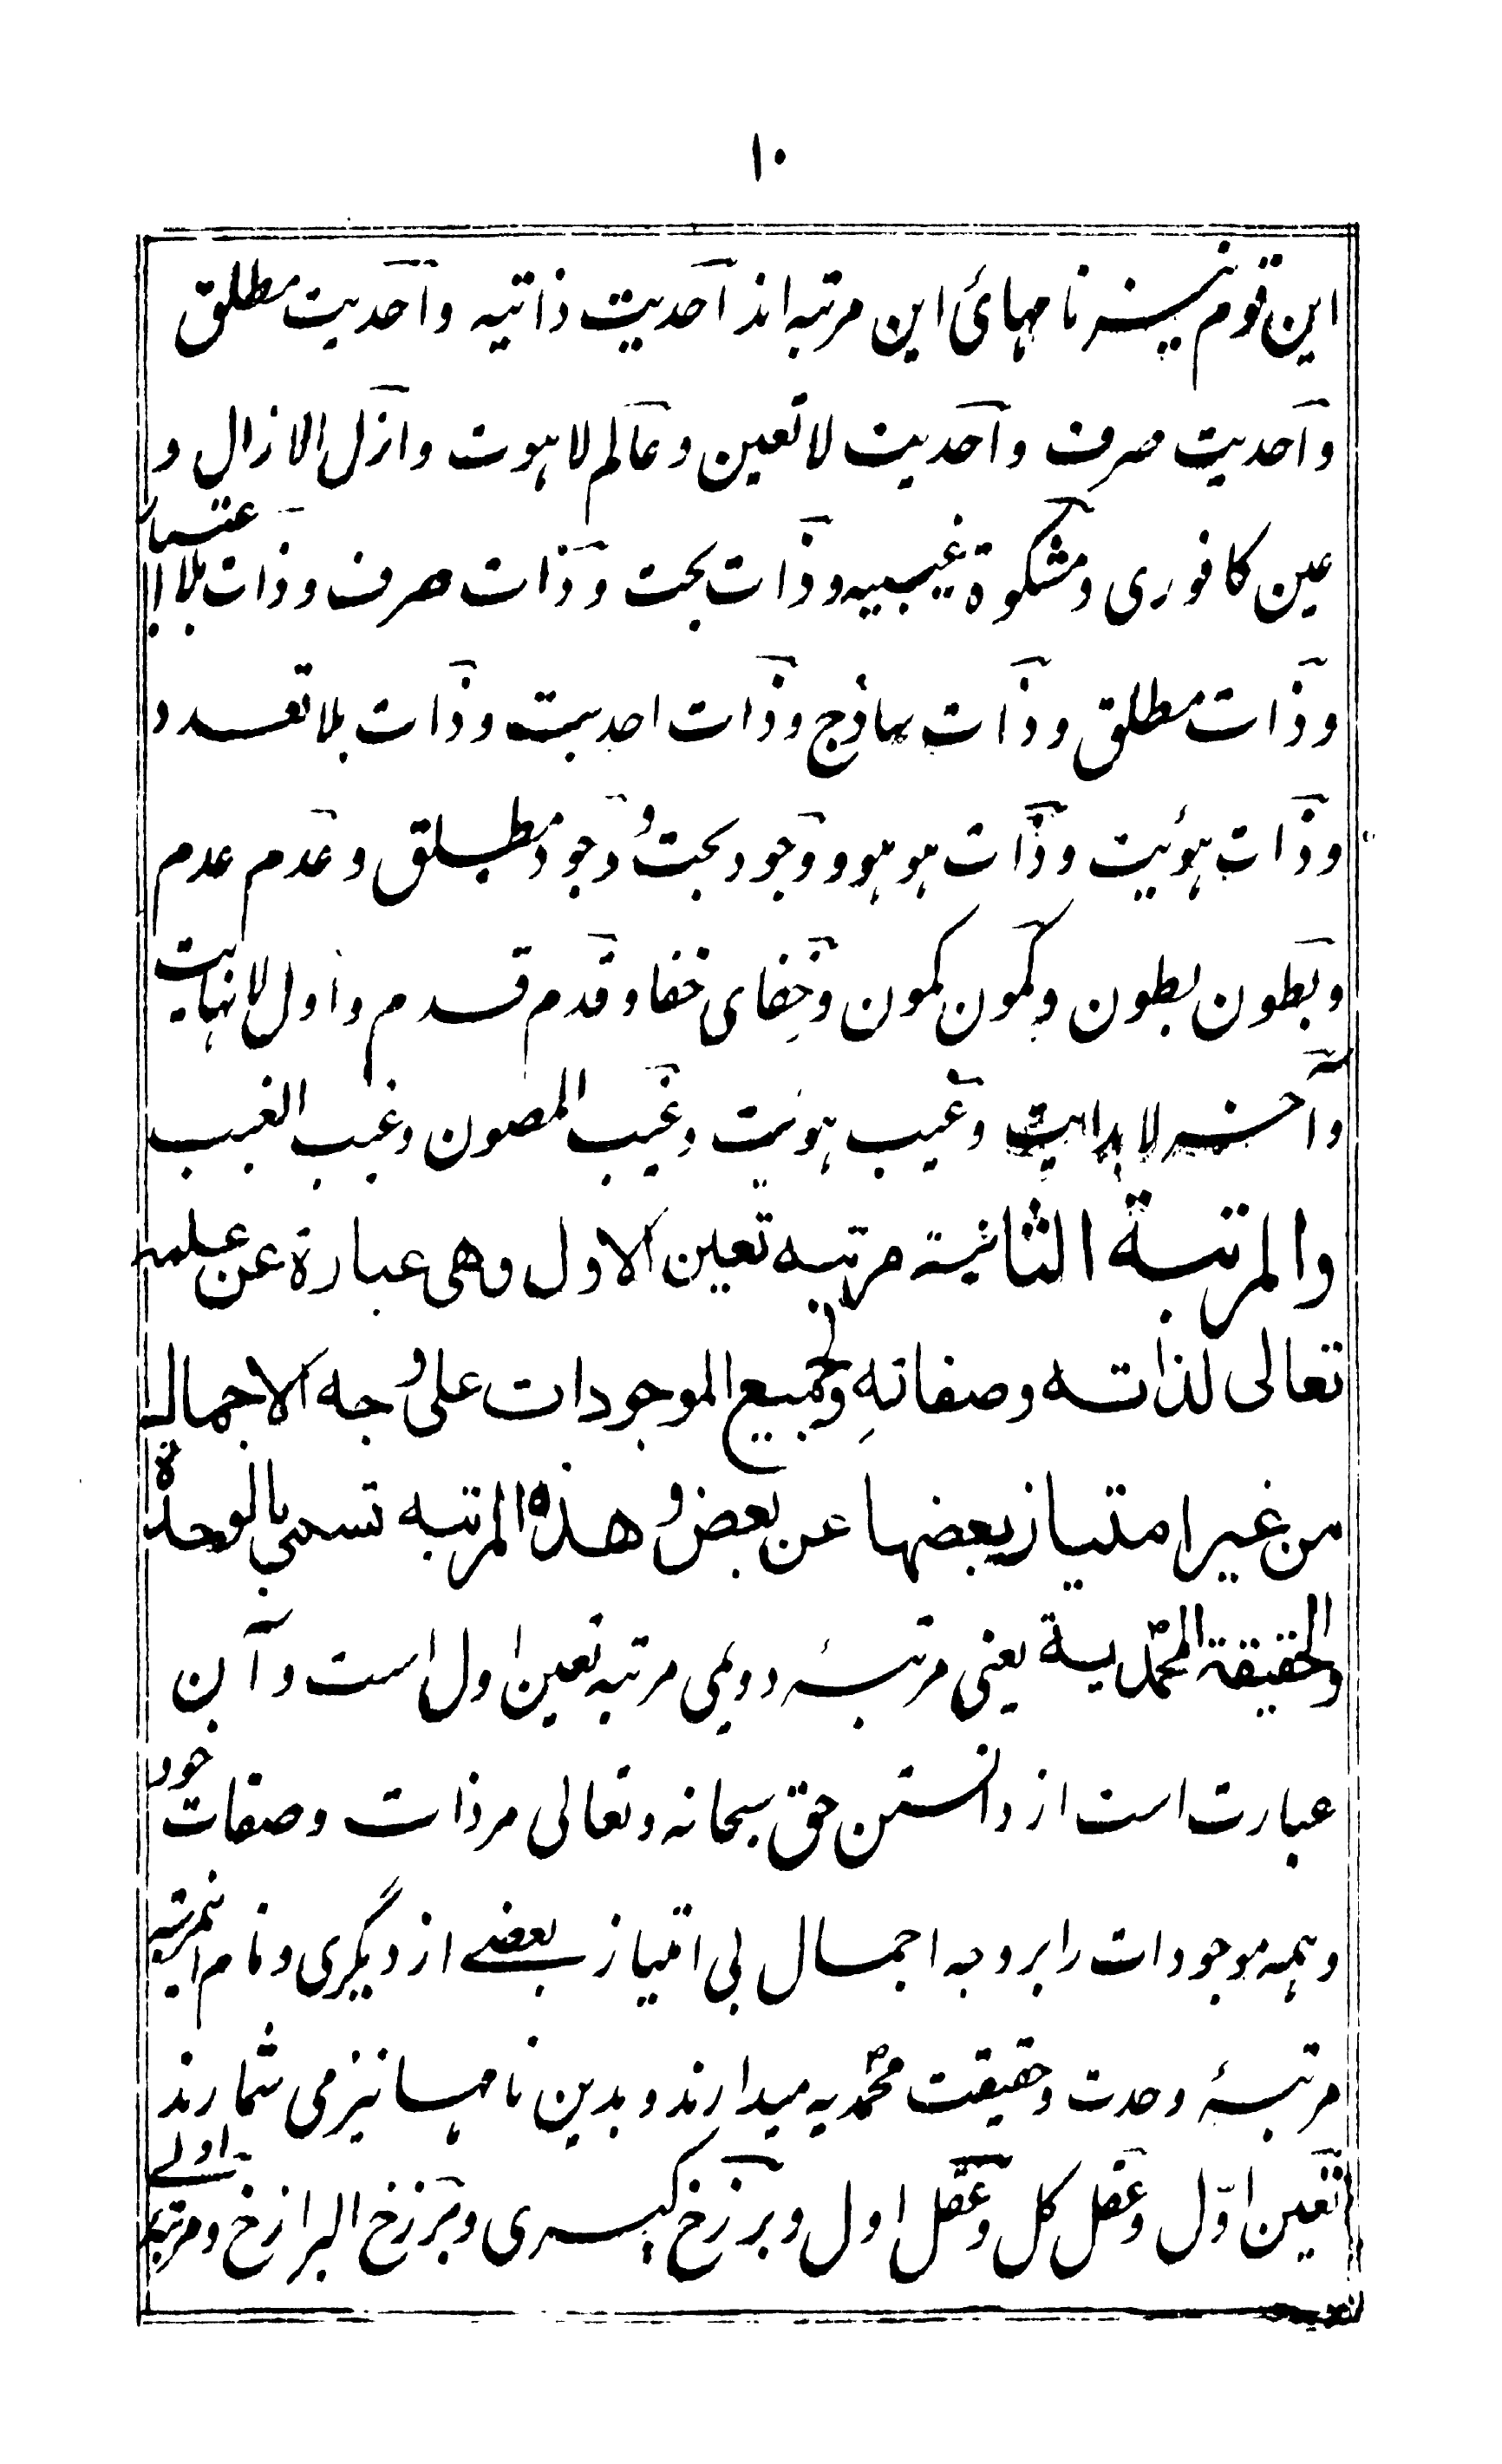 ۱۰
این قوم نیز نامهائ این مرتبه اند احدیت ذاتیه و احدیت مطلق
و احدیت صرف و احدیت لا تعین و عالم لاهوت و ازل الازال و
عین کافوری و مشکوة غیبیه و ذات بحت و ذات صرف و ذات بلا اعتبار
و ذات مطلق و ذات ساذج و ذات احدیت و ذات بلا تعدد
و ذات هوئیت و ذات هو هو و وجود بحت و وجود مطلق و عدم عدم
و بطون بطون و کمون کمون و خفای خفا و قدم قدم و اول لا نهایت
و آخر لا بدایت و غیب هوئیت و غیب المصون و غیب الغیب
والمرتبة الثانیة مرتبه تعین الاول وهی عبارة عن علمه
تعالی لذاته وصفاتهِ ولجمیع الموجودات علی وجه الاجمال
من غیر امتیاز بعضها عن بعض و هذه المرتبه تسمی بالوحدة
والحقیقة المحمّدیة یعنی مرتبۂ دویمی مرتبه تعین اول است و آن
عبارت است از دانستن حق سبحانه و تعالی مر ذات و صفات خود
و همه موجودات را بر وجه اجمال بی امتیاز بعضے از دیگری و نام اینمرتبه
مرتبۂ وحدت و حقیقت محمّدیه میدارند و بدین نامها نیز می شمارند
تعین اوّل و عقل کل و عقل اول و برزخ کبری و برزخ البرازخ و مرتبه اولے